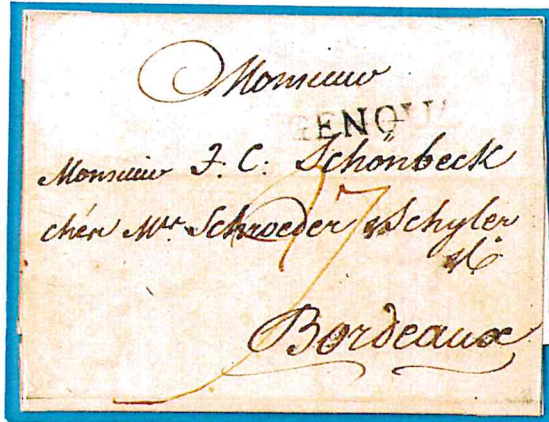 Monsieur
GENOV
Monsieur J: C: Schönbeck
chéz Mrs Schroeder & Schyler
& C
17
Bordeaux